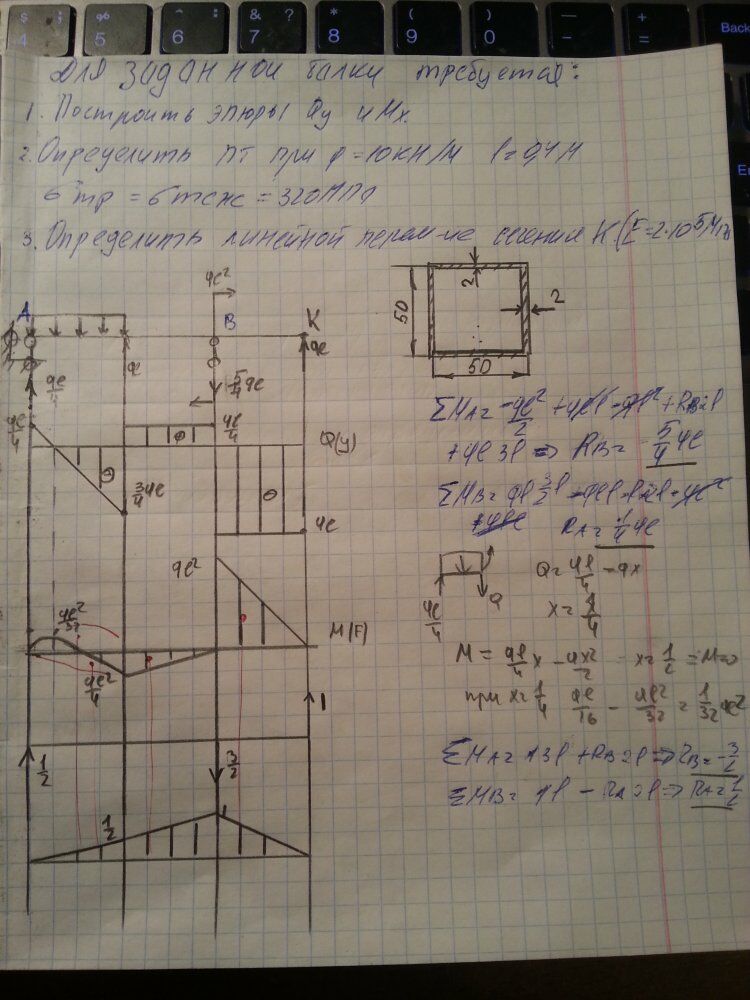 $ 4
% 5
^ 6
& ? 7
* 8
( 9
) 0
_ -
+ =
Back
Для заданной балки требуется:
1. Построить эпюры Qy и Mx.
2. Определить nт при q=10кН/м l=0,4м
бтр = бтсж = 320МПа
3. Определить линейной перем-ие сечения К. (E=2·10⁵МПа
ql²
A
B
K
ql
ql
ql/4
5/4 ql
ql/4
ql/4
Q(y)
3/4 ql
ql
ql²
ql²/32
M(F)
ql²/4
1
1/2
3/2
1/2
1
2
50
2
50
ΣMA= -ql²/2 + qll - ql² + RB2l
+ql 3l => RB= -5/4 ql
ΣMB= ql 3/2 l
RA= 1/4 ql
ql/4
Q
Q= ql/4 - qx
x= l/4
M = ql/4 x - qx²/2 - x= l/2 = M=0
при x= l/4 ql²/16 - ql²/32 = 1/32 ql²
ΣMA= 1 3l + RB 2l => RB= -3/2
ΣMB= 1l - RA 2l => RA= 1/2